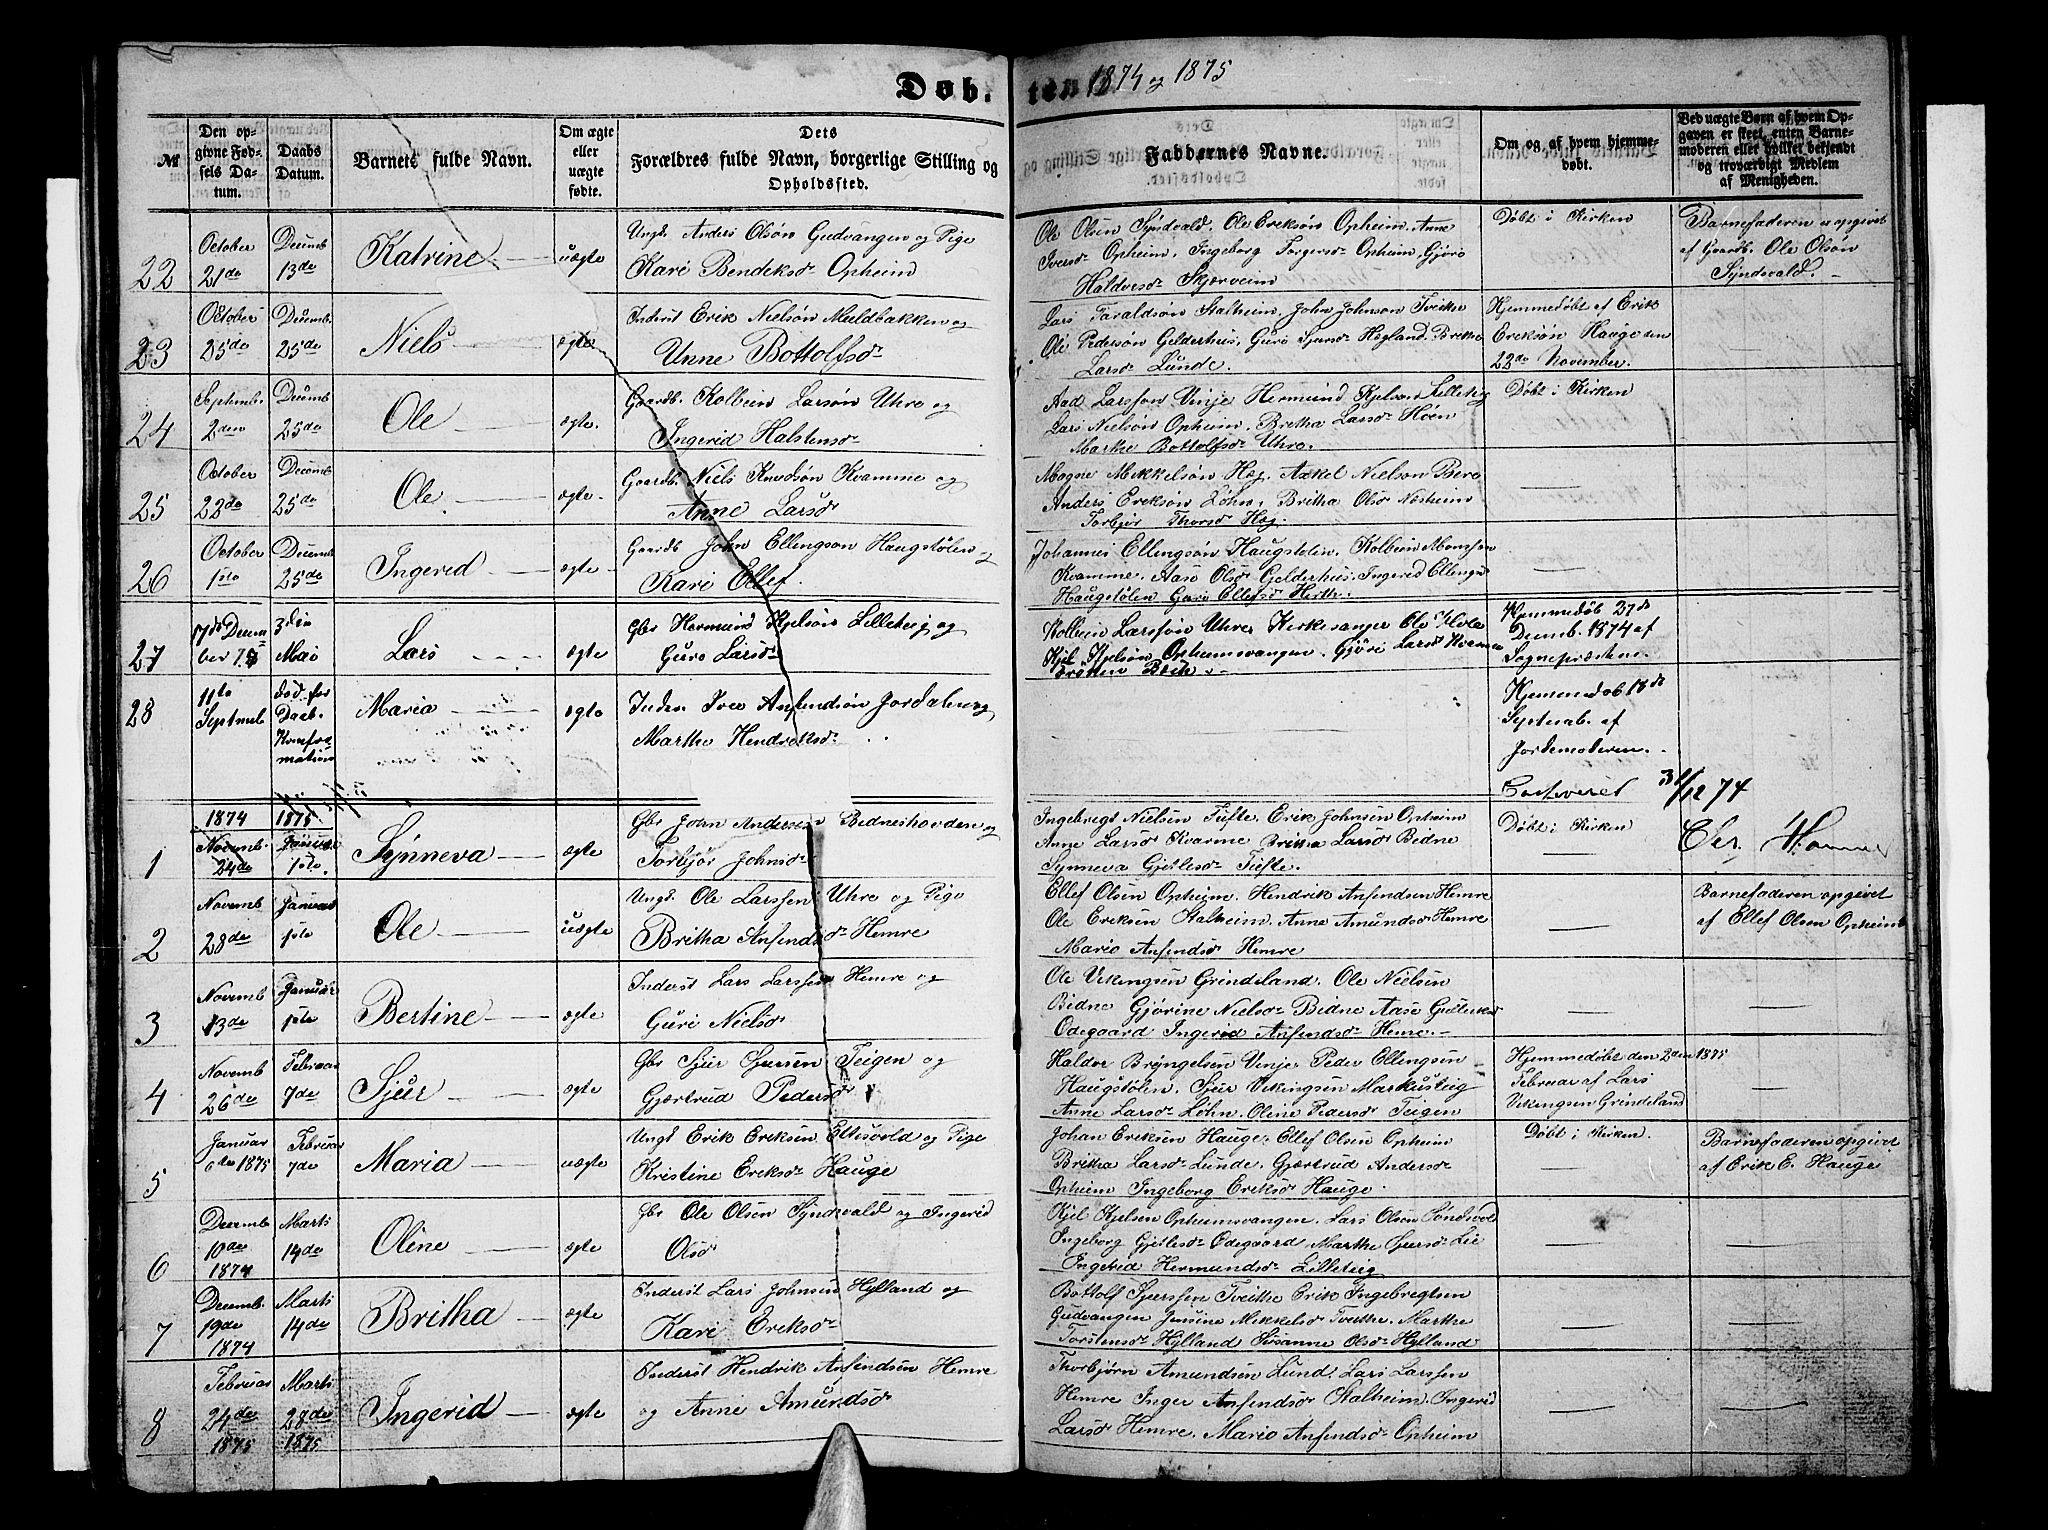 Døb. ten 1874 og 1875
№
Den op-
givne Fød-
sels Da-
tum.
Daabs
Datum.
Barnets fulde Navn.
Om ægte
eller
uægte
fødte.
Dets
Forældres fulde Navn, borgerlige Stilling og
Opholdssted.
Faddernes Navne.
Om og af hvem hjemme-
døbt.
Ved uægte Børn af hvem Op-
gaven er skeet, enten Barne-
moderen eller hvilket bekjendt
og troværdigt Medlem
af Menigheden.
22
October
21de
Decemb
13de
Katrine
uægte
Ungk. Anders Olsøn Gudvangen og Pige
Kari Bendiksdr Opheim
Ole Olsen Syndvald. Ole Eriksøn Opheim, Anne
Iversdr Opheim, Ingeborg Torgersdr Opheim, Gjøro
Haldorsdr Skjerveim
Døbt i Kirken
Barnefaderen er opgivet
af Gaardb. Ole Olsøn
Syndsvald.
23
October
25de
Decemb.
25de
Niels
ægte
Inderst Erik Nielsøn Muldbakken og
Unne Bottolfsdr
Lars Taraldsøn Stalheim, John Johnson Tveithe
Ole Pedersøn Gelderhus, Guro Sjursdr Høgland, Britha
Larsdr Lunde.
Hjemmedøbt af Erik
Eriksøn Hauge den
22de November.
24
Septemb.
2den
Decemb
25de
Ole
ægte.
Gaardb. Kolbein Larsøn Uhre og
Ingerid Halstensdr
Aad Larsson Vinje Hermund Kjelson Lilleteig
Lars Nielsøn Opheim. Britha Larsdr Høen
Marthe Bottolfsdr Uhre.
Døbt i Kirken
25
October
22de
Decemb
25de
Ole
ægte
Gaardb. Niels Knudsøn Kvamme og
Anne Larsdr
Mogne Mikkelsøn Hæg. Askel Nielson Berg
Anders Eriksøn Løhn, Britha Olsdr Nesheim
Torbjør Thorsdr Hæg.
26
October
1ste
Decemb
25de
Ingerid
ægte
Gaardb John Ellingsøn Haugstølen og
Kari Ellef.
Johannes Ellingsøn Haugstølen. Kolbein Monssen
Kvamme. Aase Olsdr Gelderhus. Ingerid Ellings
Haugstølen Guri Ellefsdr Hirth.
27
17de Decem
ber 74
3die
Mai
Lars
ægte
Gbr Hermund Kjelsøn Lilleteig og
Guro Larsdr
Kolbein Larssøn Uhre, Kirkesanger Ole Hole
Kjel Kjelsøn Opheimsvangen. Gjøri Larsdr Kvamme
Hjemmedøb 27de
Decemb. 1874 af
Sognepræsten.
28
11te
Septemb
død før
Daab.
Konfir-
mation
Maria
ægte
Inders. Iver Anfindsøn Jordalen og
Marthe Hendriksdr
Hjemmedøb 18de
Septemb. af
Jordemoderen.
31/12 74
1
1874
Novemb.
24de
1875
Januar
1ste.
Synneva
ægte
Gbr John Andersen Bidneshovden og
Torbjør Johnsdr
Ingebregt Nielsen Tufte. Erik Johnsen Opheim
Anne Larsdr Kvamme Britha Larsdr Bidne
Synneva Gjetlesdr Tufte.
Døbt i Kirken
2
Novemb
28de
Januar
1ste
Ole
uægte
Ungk. Ole Larssen Uhre og Pige
Britha Anfindsdr Hemre
Ellef Olsen Opheim. Hendrik Anfindsen Hemre
Ole Eriksen Stalheim. Anne Amundsdr Hemre
Mario Anfindsdr Hemre
Barnefaderen opgivet
af Ellef Olson Opheim
3
Novemb
13de
Januar
1ste
Bertine
ægte
Inderst Lars Larssen Hemre og
Guri Nielsdr
Ole Vikingsen Grindeland. Ole Nielsen
Bidne Gjørine Nielsdr Bidne Aase Gjetlesdr
Odegaard Ingerid Anfindsdr Hemre.
4
Novemb
26de
Februar
7de
Sjur
ægte
Gbr Sjur Sjursen Teigen og
Gjærtrud Pedersdr
Haldor Brynjelsen Vinje Peder Ellingsen
Haugstølen. Sjur Vikingsen Markusteig
Anne Larsdr Løhn. Oline Pedersdr Teigen
Hjemmedøbt den 2den 1875
Februar af Lars
Vikingsen Grindeland
5
Januar
1875
Februar
7de
Maria
uægte
Ungk Erik Eriksen Eltisvold og Pige
Kristine Eriksdr Hauge
Johan Eriksen Hauge. Ellef Olsen Opheim
Britha Larsdr Lunde. Gjærtrud Andersdr
Opheim Ingeborg Eriksdr Hauge.
Døbt i Kirken.
Barnefaderen opgivet
af Erik E. Hauge
6
Decemb
10de
1874
Marts
14de
Oline
ægte
Gbr Ole Olsen Syndsvald og Ingerid
Olsdr
Kjel Kjelsen Opheimsvangen. Lars Olsen Syndsvol
Ingeborg Gjetlesdr Odegaard Marthe Sjursdr Lie
Ingerid Hermundsdr Lilleteig
7
Decemb.
19de
1874
Marts
14de
Britha
ægte
Inderst Lars Johnsen Hylland og
Kari Eriksdr
Bottolf Sjurssen Tveithe Erik Ingebregtsen
Gudvangen Jensine Mikkelsdr Tveithe. Marthe
Torstensdr Hylland Susanne Olsdr Hylland
8
Februar
24de
1875
Marts
28de
1875
Ingerid
ægte
Inderst Hendrik Anfindsen Hemre
og Anne Amundsdr
Thorbjørn Amundsen Lund. Lars Larssen
Hemre Inger Anfindsdr Stalheim. Ingerid
Larsdr Hemre. Mario Anfindsdr Opheim